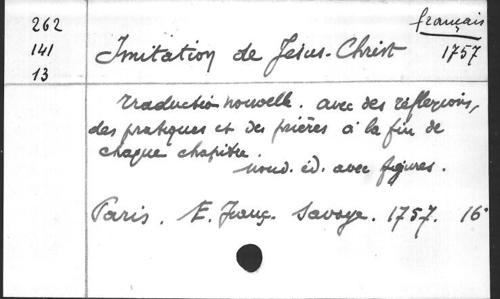 262
141
13
français
1757
Imitation de Jésus-Christ
Traduction nouvelle. avec des réflexions,
des pratiques et des prières à la fin de
chaque chapitre.
nouv. éd. avec figures.
Paris. E. Franç. Savoye. 1757. 16°